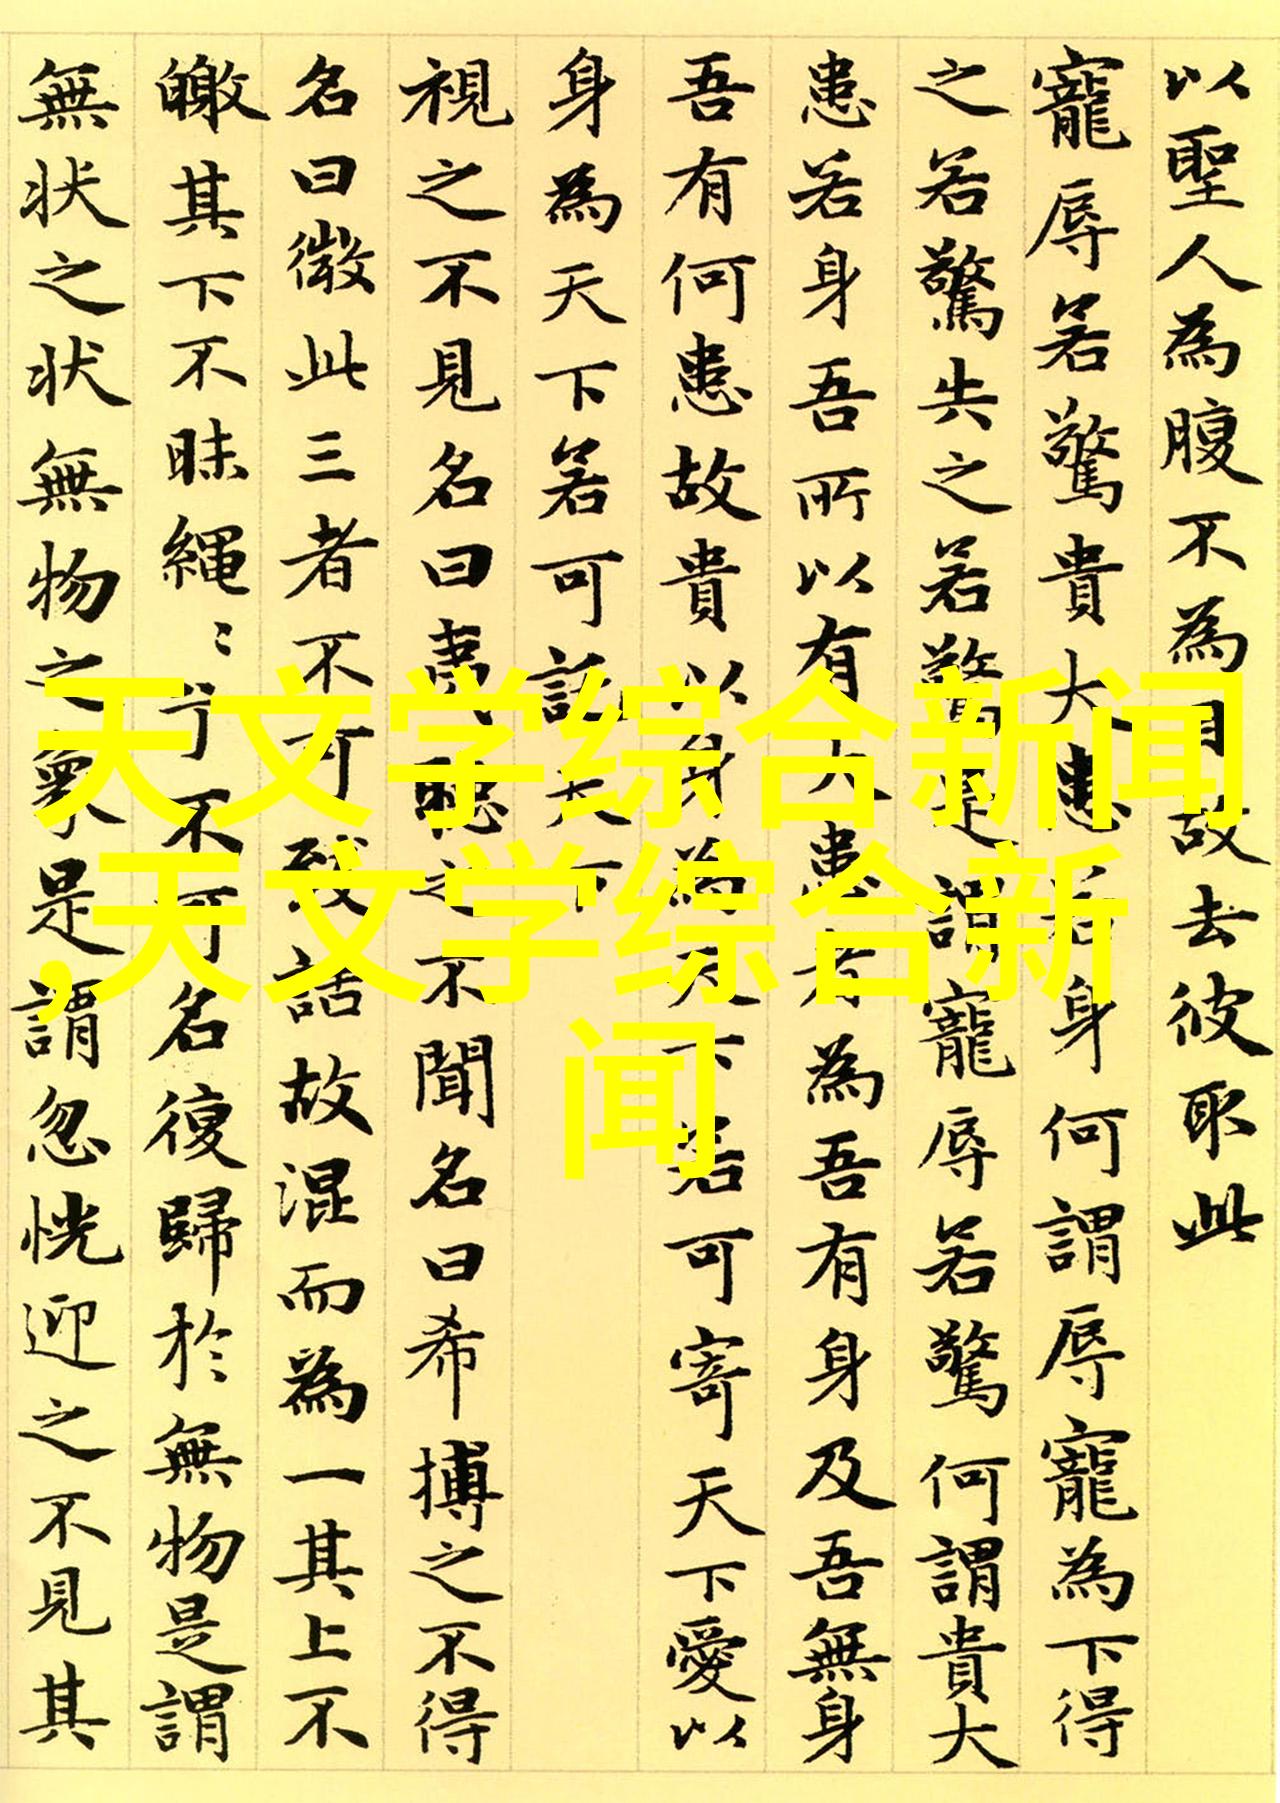 以聖人為腹不為目故去彼取此
寵辱若驚貴大患若身何謂辱寵為下得
之若驚失之若驚是謂寵辱若驚何謂貴大
患若身吾所以有大患者為吾有身及吾無身
吾有何患故貴以身為天下若可寄天下愛以
身為天下若可託天下
視之不見名曰夷聽之不聞名曰希搏之不得
名曰微此三者不可致詰故混而為一其上不
皦其下不昧繩〻兮不可名復歸於無物是謂
無状之状無物之象是謂忽恍迎之不見其
天文学综合新闻
,天文学综合新
闻